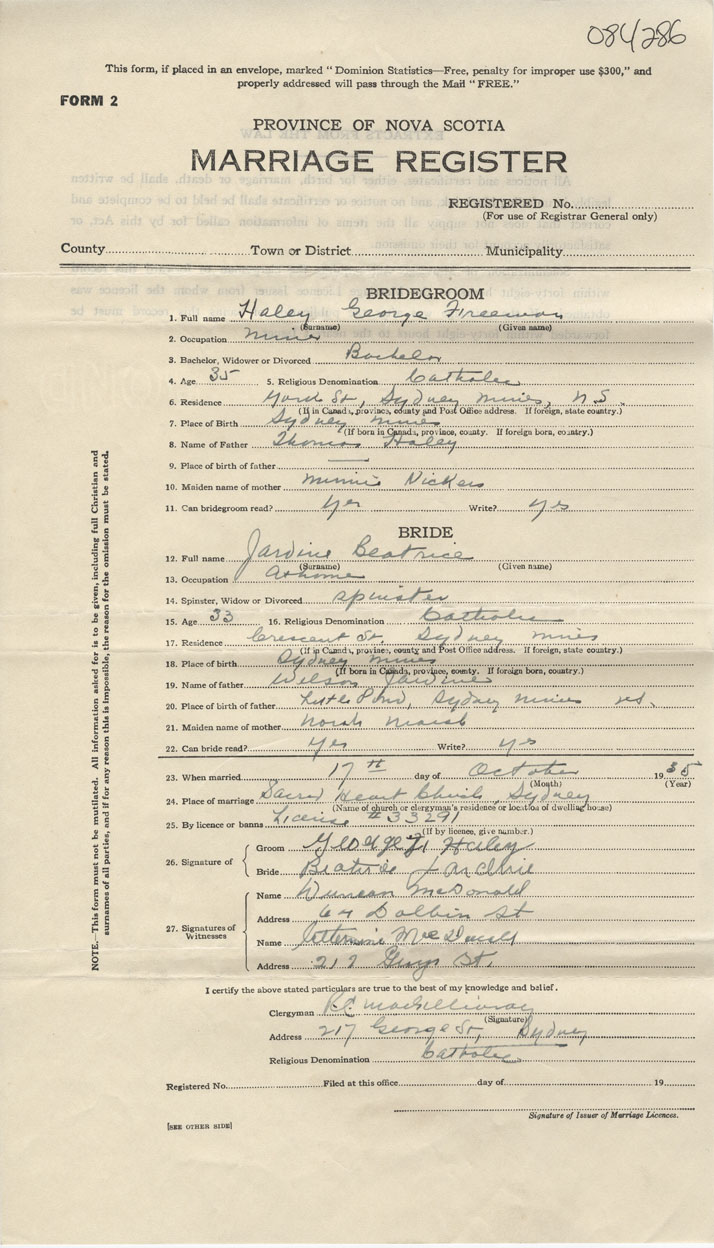 084286
This form, if placed in an envelope, marked " Dominion Statistics—Free, penalty for improper use $300," and
properly addressed will pass through the Mail "FREE."
FORM 2
PROVINCE OF NOVA SCOTIA
MARRIAGE REGISTER
REGISTERED No.
(For use of Registrar General only)
County Town or District Municipality
BRIDEGROOM
1. Full name Haley George Freeman
(Surname) (Given name)
2. Occupation miner
3. Bachelor, Widower or Divorced Bachelor
4. Age 35 5. Religious Denomination Catholic
6. Residence St, Sydney mines, N S.
(If in Canada, province, county and Post Office address. If foreign, state country.)
7. Place of Birth Sydney mines
(If born in Canada, province, county. If foreign born, country.)
8. Name of Father Thomas Haley
9. Place of birth of father —
10. Maiden name of mother Minnie
11. Can bridegroom read? yes Write? yes
BRIDE
12. Full name Jardine Beatrice
(Surname) (Given name)
13. Occupation At home
14. Spinster, Widow or Divorced spinster
15. Age 33 16. Religious Denomination Catholic
17. Residence Crescent St, Sydney mines
(If in Canada, province, county and Post Office address. If foreign, state country.)
18. Place of birth Sydney mines
(If born in Canada, province, county. If foreign born, country.)
19. Name of father Wilson Jardine
20. Place of birth of father Little Pond, Sydney mines
21. Maiden name of mother Norah
22. Can bride read? yes Write? yes
23. When married 17th day of October 1935
(Month) (Year)
24. Place of marriage Sacred Heart Church, Sydney
(Name of church or clergyman's residence or location of dwelling house)
25. By licence or banns License #33291
(If by licence, give number.)
26. Signature of
Groom George F. Haley
Bride Beatrice Jardine
27. Signatures of Witnesses
Name Duncan McDonald
Address 64 St
Name
Address 212 St.
I certify the above stated particulars are true to the best of my knowledge and belief.
Clergyman MacGillivray
(Signature)
Address 217 George St, Sydney
Religious Denomination Catholic
Registered No. Filed at this office day of 19
Signature of Issuer of Marriage Licences.
[SEE OTHER SIDE]
NOTE.—This form must not be mutilated. All information asked for is to be given, including full Christian and
surnames of all parties, and if for any reason this is impossible, the reason for the omission must be stated.